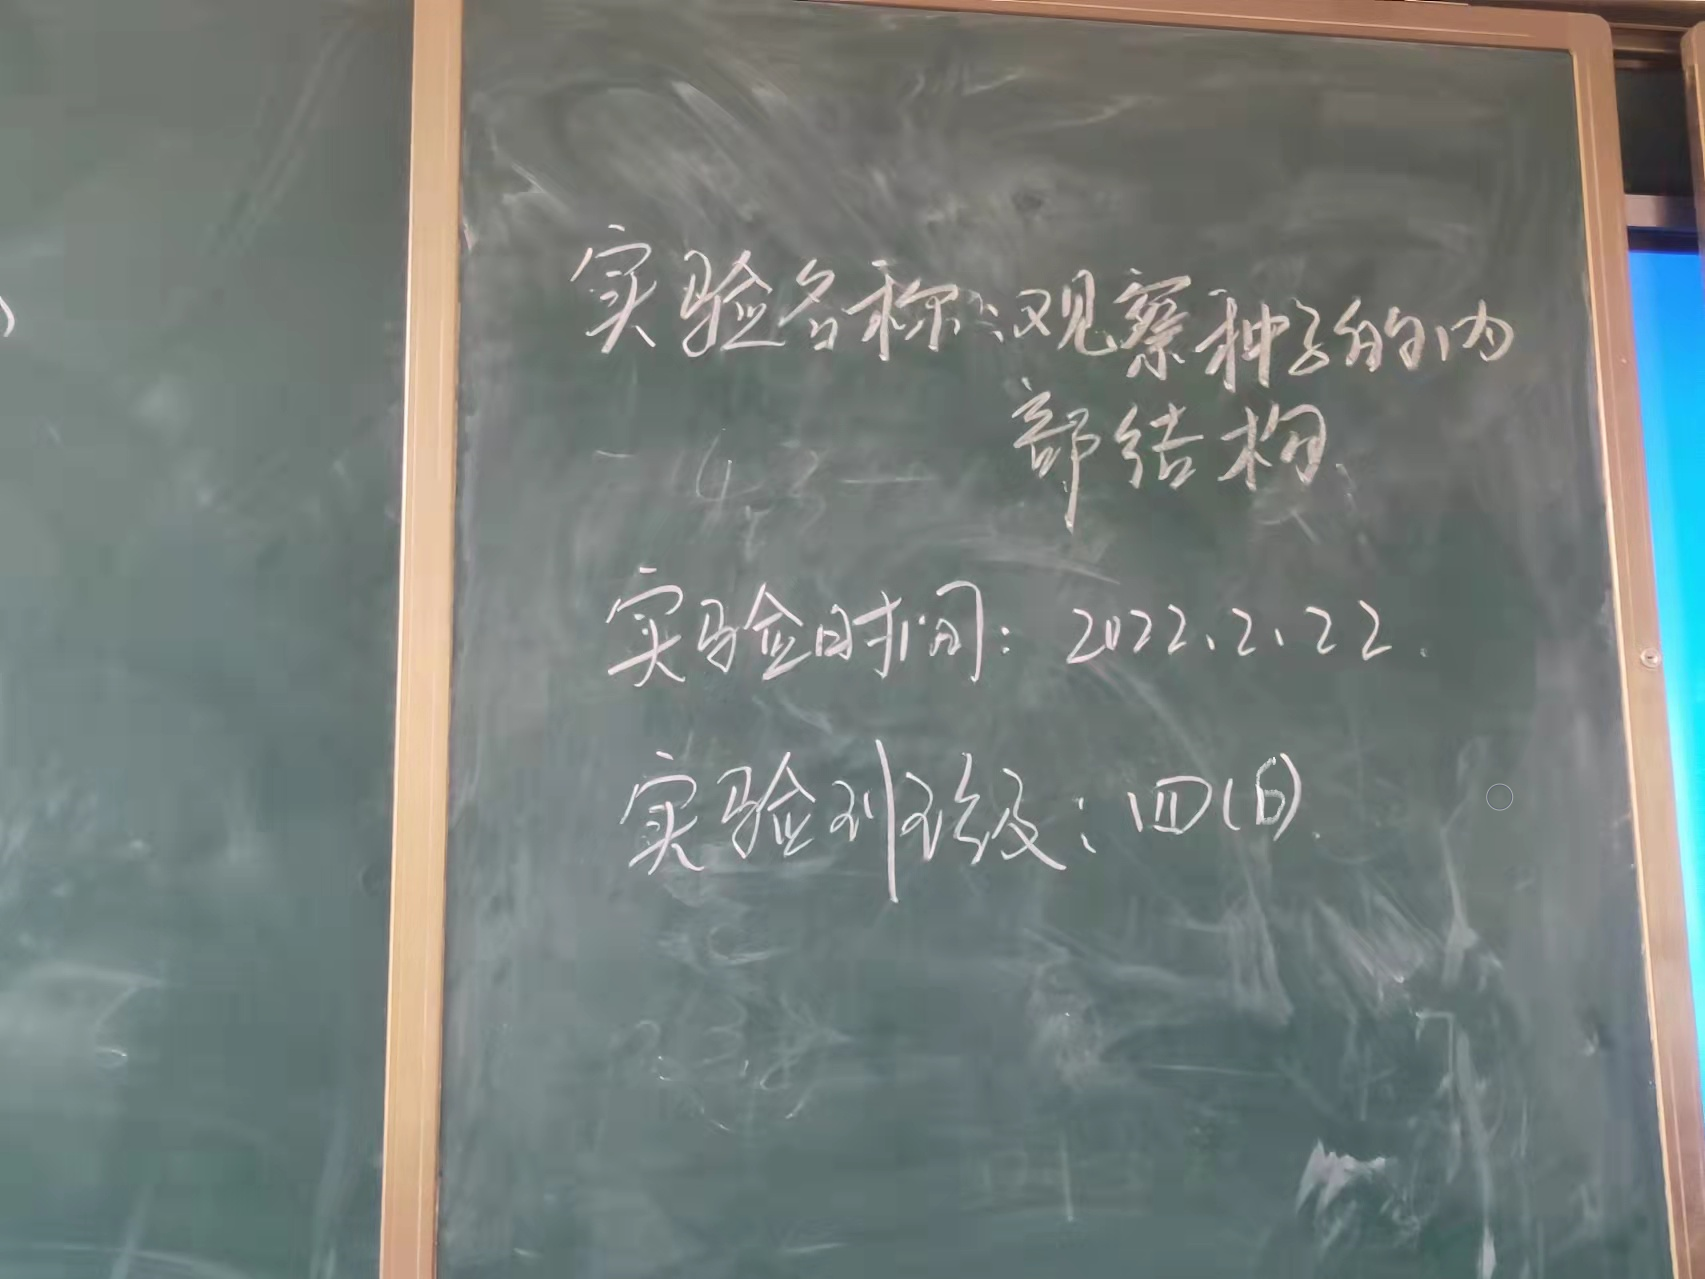 实验名称:观察种子的内
部结构
实验时间: 2022.2.22.
实验班级:四(6)